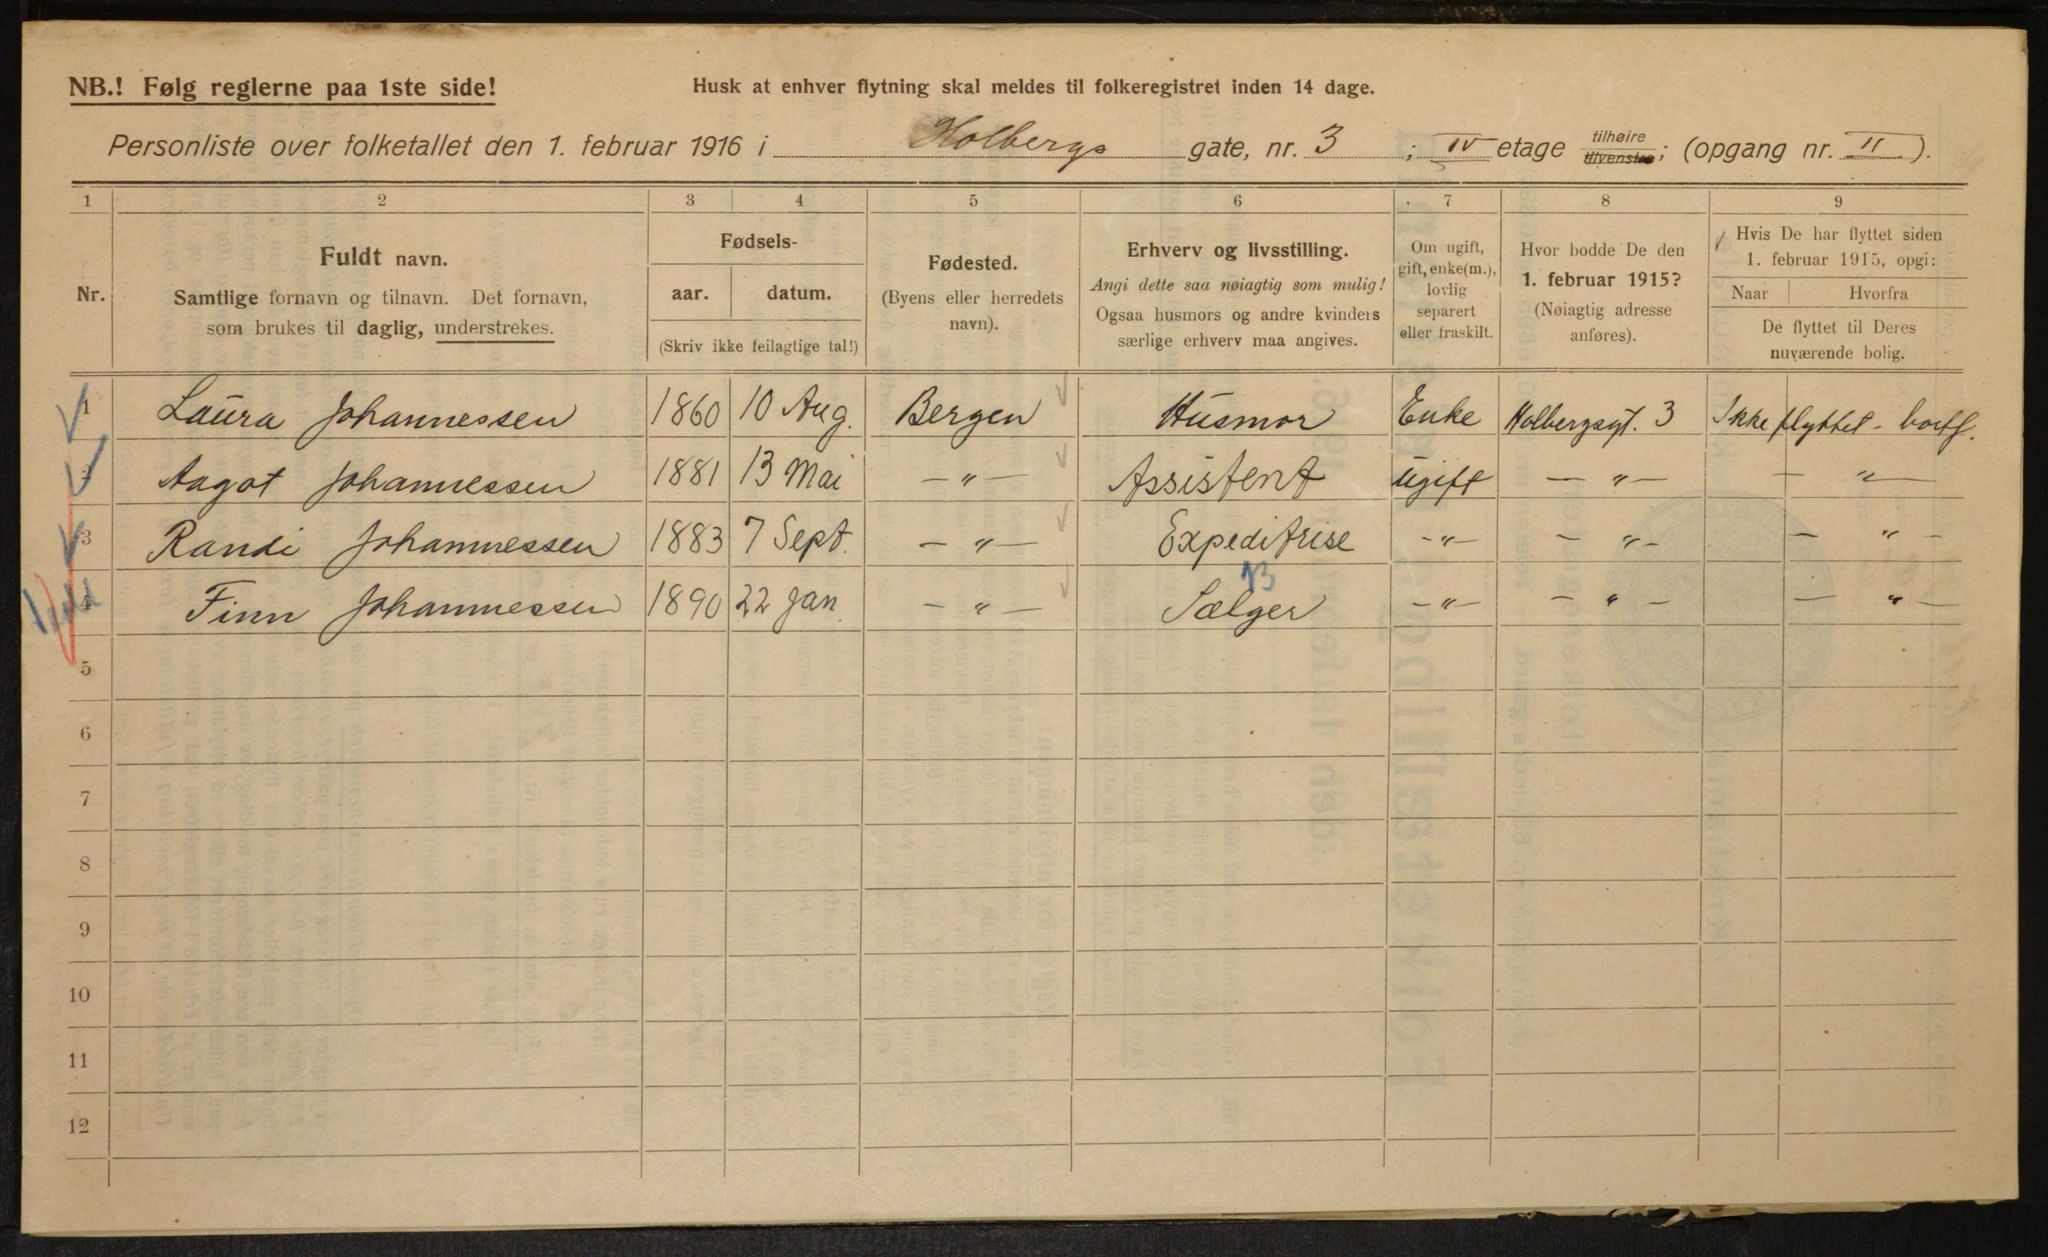 NB.! Følg reglerne paa 1ste side!
Husk at enhver flytning skal meldes til folkeregistret inden 14 dage.
Personliste over folketallet den 1. februar 1916 i Holbergs gate, nr. 3 ; IV etage tilhøire tilvenstre; (opgang nr. II ).
1 2 3 4 5 6 7 8 9
Nr.
Fuldt navn.
Samtlige fornavn og tilnavn. Det fornavn,
som brukes til daglig, understrekes.
Fødsels-
aar. datum.
(Skriv ikke feilagtige tal!)
Fødested.
(Byens eller herredets
navn).
Erhverv og livsstilling.
Angi dette saa nøiagtig som mulig!
Ogsaa husmors og andre kvinders
særlige erhverv maa angives.
Om ugift,
gift, enke(m.),
lovlig
separert
eller fraskilt.
Hvor bodde De den
1. februar 1915?
(Nøiagtig adresse
anføres).
Hvis De har flyttet siden
1. februar 1915, opgi:
Naar Hvorfra
De flyttet til Deres
nuværende bolig.
1 Laura Johannessen 1860 10 Aug. Bergen Husmor Enke Holbergsgt. 3 Ikke flyttet
2 Aagot Johannessen 1881 13 Mai — " — Assistent ugift — " — — " —
3 Randi Johannessen 1883 7 Sept. — " — Expeditrise — " — — " — — " —
4 Finn Johannessen 1890 22 Jan. — " — Sælger — " — — " — — " —
5
6
7
8
9
10
11
12